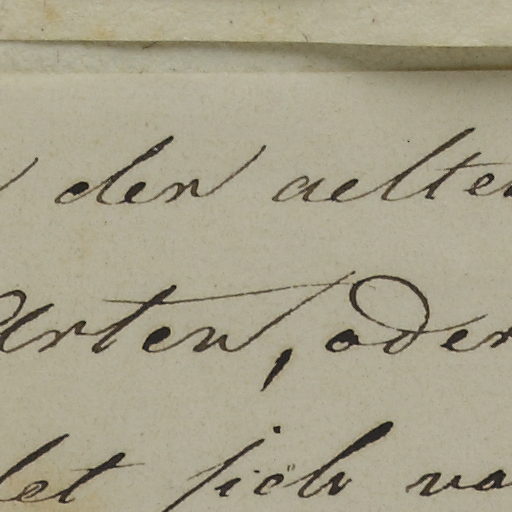 den aelte
Arten, oder
let sich va